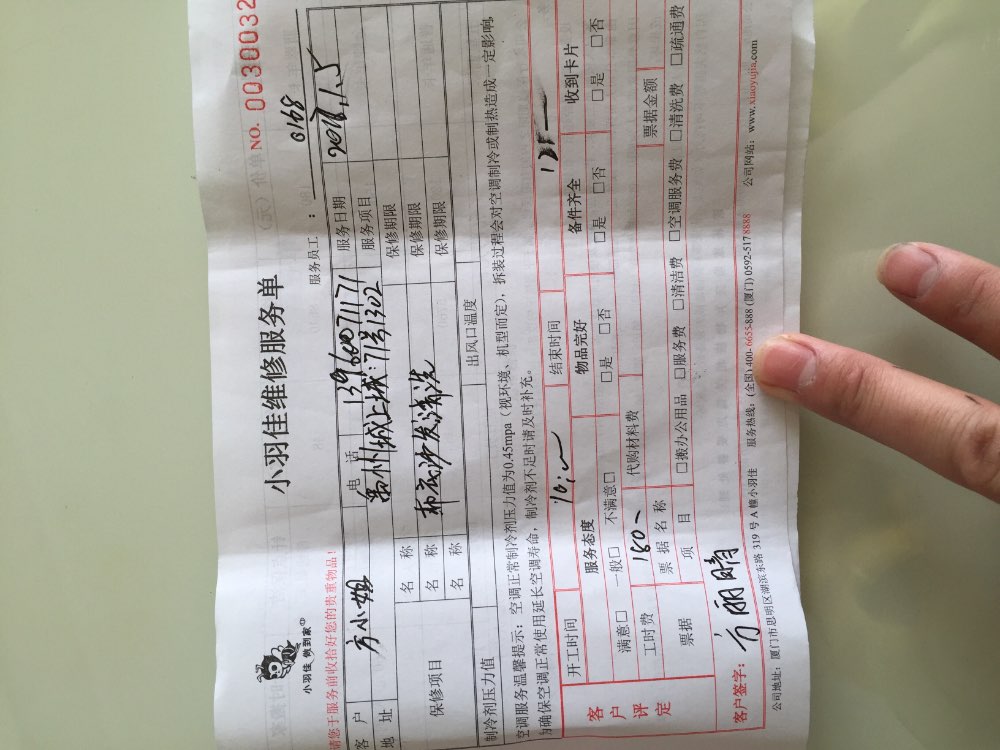 小羽佳 做到家
小羽佳维修服务单
NO. 0030032
请您于服务前收拾好您的贵重物品!
服务员工: 0168
客户 方小姐 电话 13966007171 服务日期 2016.1.5
地址 禹州城上城:71号1302 服务项目
保修项目 名称 布底沙发清洗 保修期限
名称 保修期限
名称 保修期限
制冷剂压力值 出风口温度
空调服务温馨提示:空调正常制冷剂压力值为0.45mpa(视环境、机型而定),拆装过程会对空调制冷或制热造成一定影响,
为确保空调正常使用延长空调寿命,制冷剂不足时请及时补充。
开工时间 10: 结束时间
客户评定
服务态度 物品完好 备件齐全 收到卡片
满意□ 一般□ 不满意□ □是 □否 □是 □否 □是 □否
工时费 180 代购材料费 票据金额
票据 票据名称
项目 □搬办公用品 □服务费 □清洁费 □空调服务费 □清洗费 □疏通费
客户签字: 方丽晴
公司地址:厦门市思明区湖滨东路 319 号 A 幢小羽佳 服务热线:(全国) 400-6655-888 (厦门) 0592-5178888 公司网站:www.xiaoyujia.com